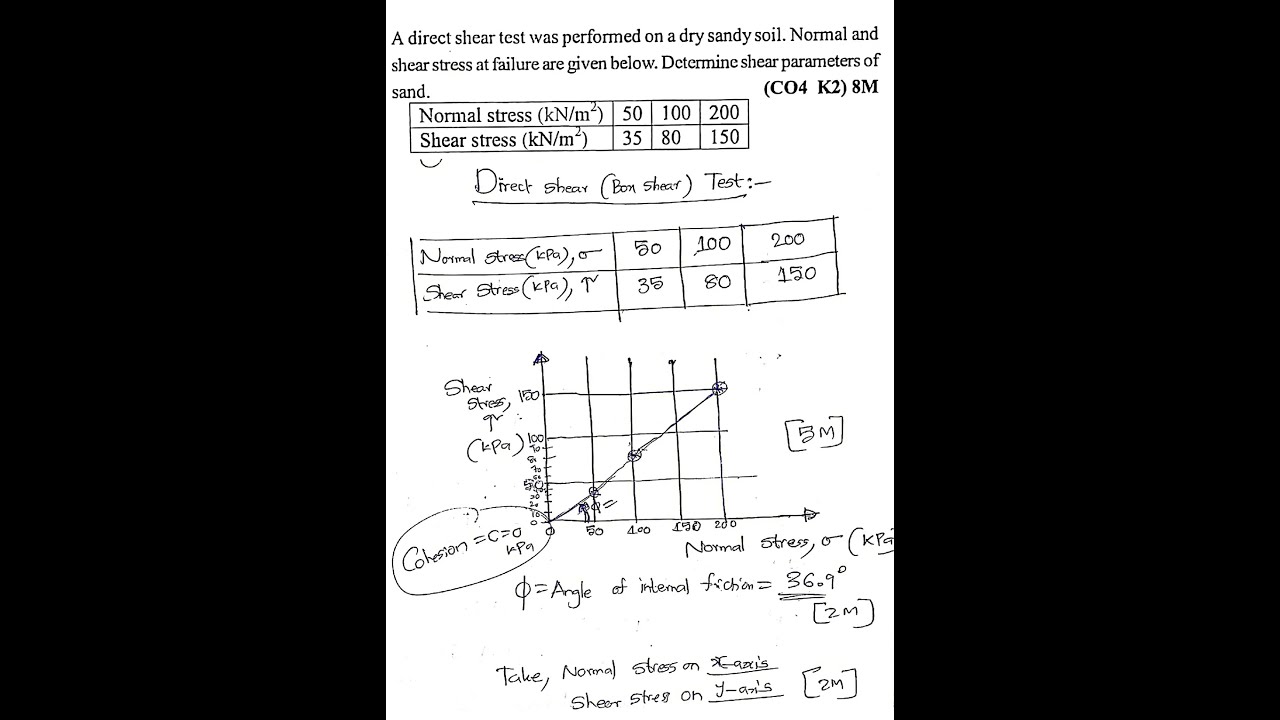 A direct shear test was performed on a dry sandy soil. Normal and
shear stress at failure are given below. Determine shear parameters of
sand. (CO4 K2) 8M
Normal stress (kN/m²) 50 100 200
Shear stress (kN/m²) 35 80 150
Direct shear (Box shear) Test:-
Normal stress(kPa), σ 50 100 200
Shear stress(kPa), τ 35 80 150
Shear
Stress,
τ
(kPa)
150
100
90
80
70
50
20
10
0
φ=
0 50 100 150 200
[5M]
Cohesion = C = 0
kPa
Normal stress, σ (kPa)
φ = Angle of internal friction = 36.9°
[2M]
Take, Normal stress on x-axis
Shear stress on y-axis [2M]